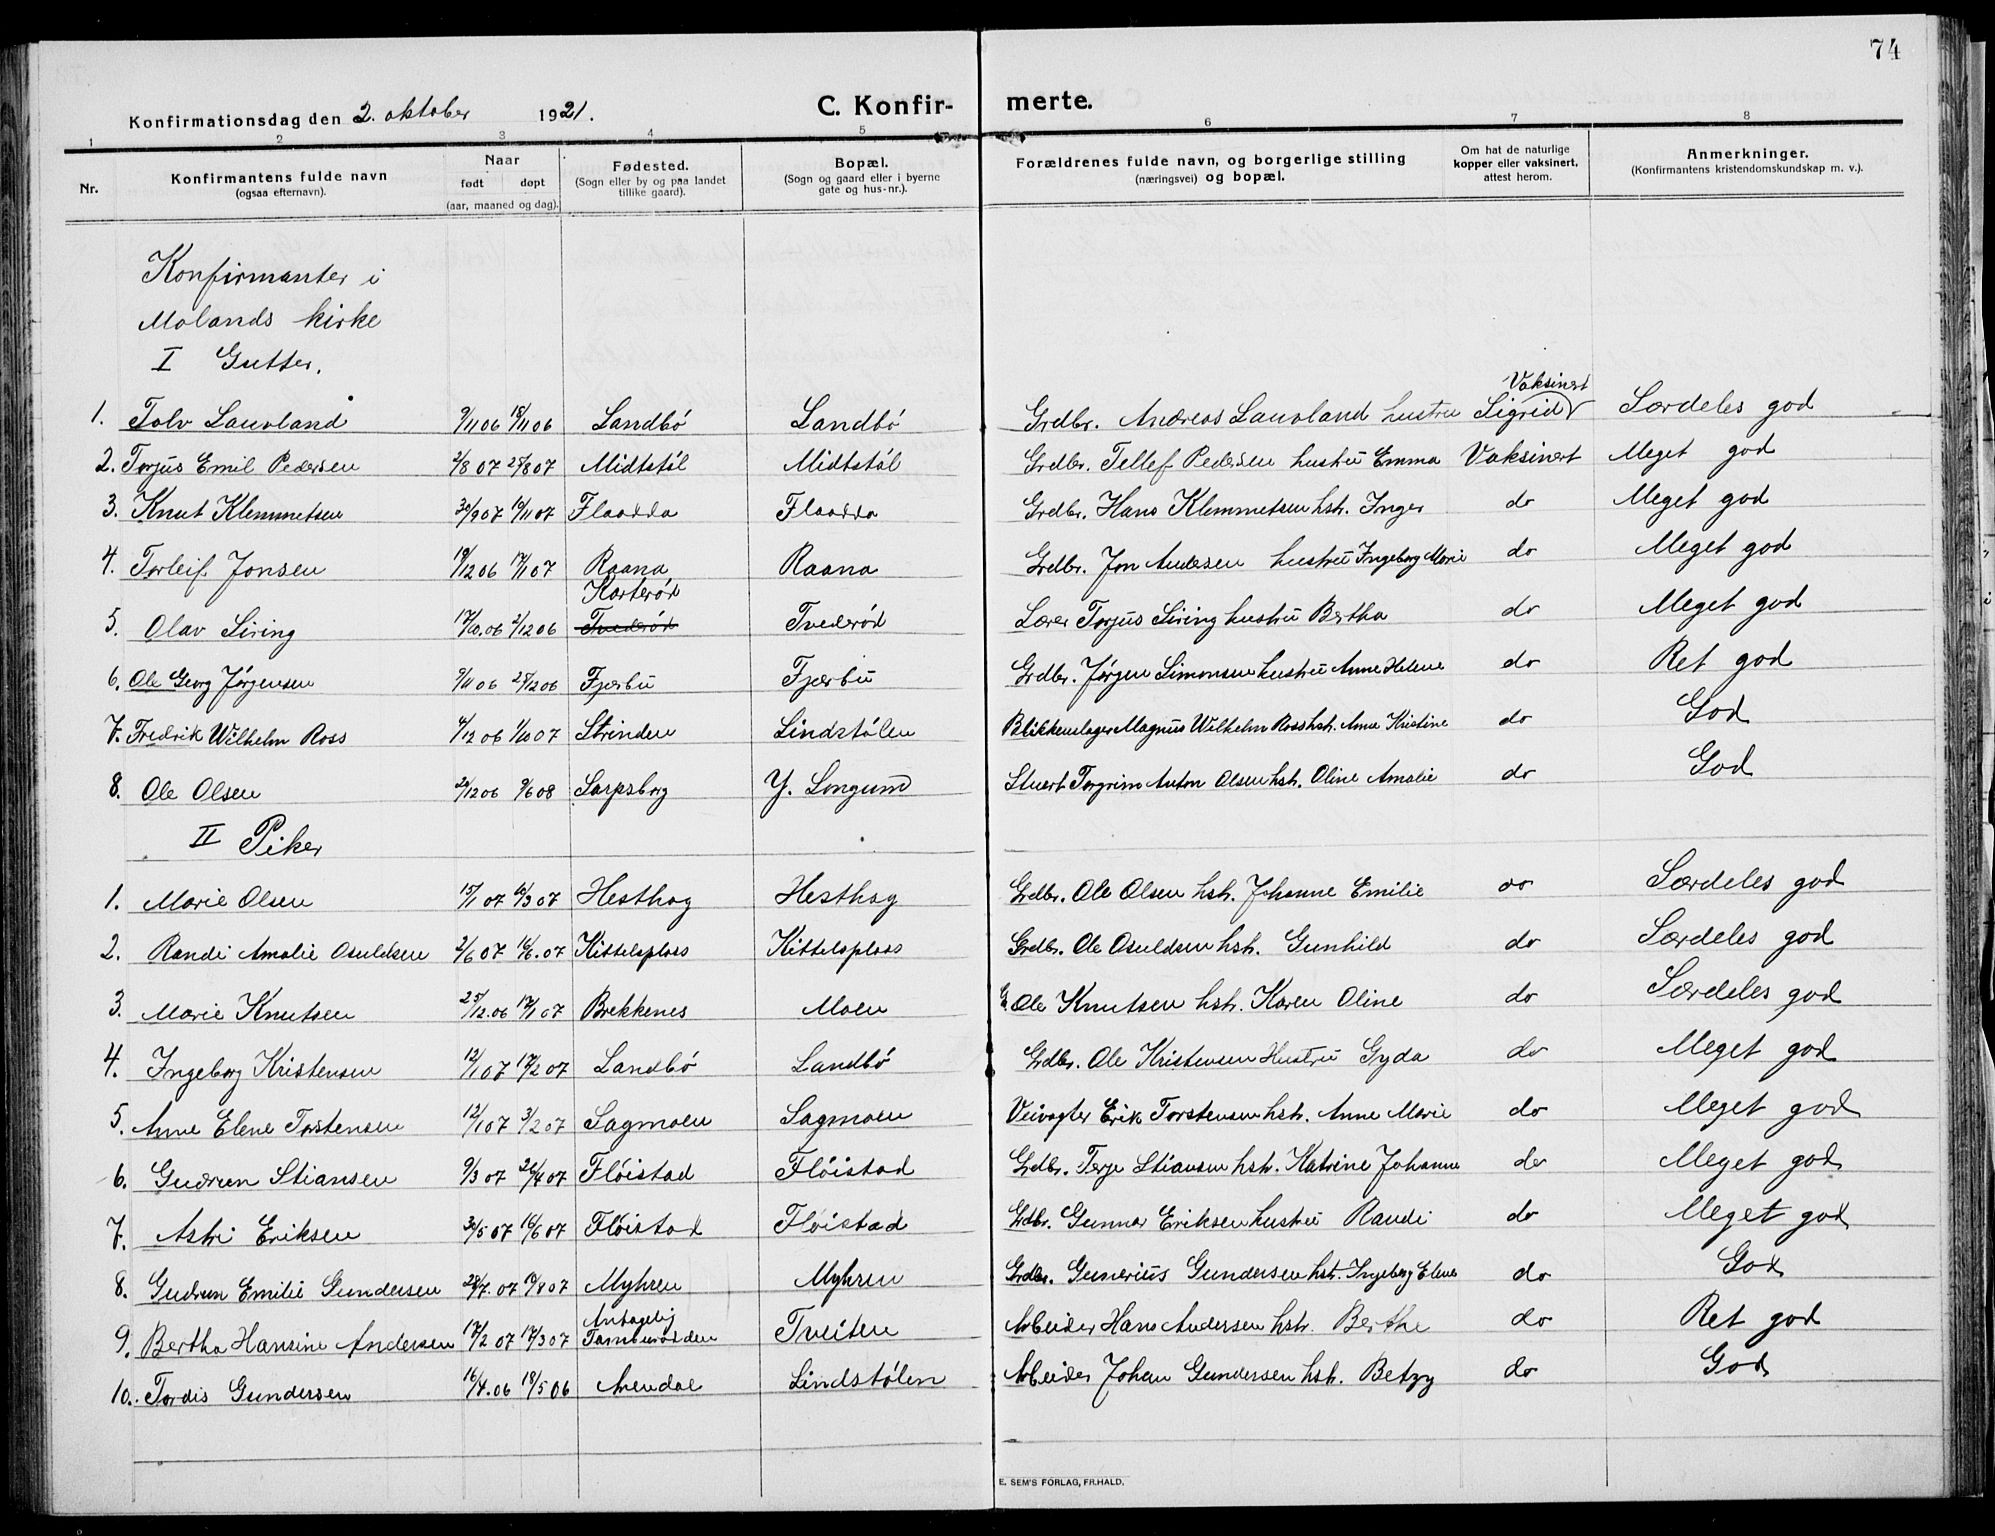 74
Konfirmationsdag den 2. oktober 1921.
C. Konfir- merte.
1 2 3 4 5 6 7 8
Nr.
Konfirmantens fulde navn
(ogsaa efternavn).
Naar
født døpt
(aar, maaned og dag).
Fødested.
(Sogn eller by og paa landet
tillike gaard).
Bopæl.
(Sogn og gaard eller i byerne
gate og hus-nr.).
Forældrenes fulde navn, og borgerlige stilling
(næringsvei) og bopæl.
Om hat de naturlige
kopper eller vaksinert,
attest herom.
Anmerkninger.
(Konfirmantens kristendomskundskap m. v.).
Konfirmanter i
Molands kirke
I Gutter.
Vaksinert
1. Tolv Lauvland 9/11 06 18/11 06 Landbø Landbø Grdbr. Andreas Lauvland hustru Sigrid Særdeles god
2. Torjus Emil Pedersen 2/8 07 25/8 07 Midtstøl Midtstøl Grdbr. Tellef Pedersen hustru Emma Vaksinert Meget god
3. Knut Klemmetsen 30/9 07 10/11 07 Flaadda Flaadda Grdbr. Hans Klemmetsen hstr. Inger do Meget god
4. Torleif Jonsen 19/12 06 17/1 07 Raana Raana Grdbr. Jon Andersen hustru Ingeborg Marie do Meget god
Karterød
5. Olav Siring 17/10.06 2/12 06 Tvederød Tvederød Lærer Torjus Siring hustru Bertha do Meget god
6. Ole Georg Jørgensen 9/11 06 25/12 06 Fjærbu Fjærbu Grdbr. Jørgen Simonsen hustru Anne Helene do Ret god
7. Fredrik Wilhelm Ross 4/12 06 1/10 07 Strinden Lindstølen Blikkenslager Magnus Wilhelm Ross hstr. Anna Kristine do God
8. Ole Olsen 21/12 06 9/6 08 Sarpsborg Y. Longum Stuert Torgrim Anton Olsen hstr. Oline Amalie do God
II Piker
1. Marie Olsen 15/1 07 10/3 07 Hesthag Hesthag Grdbr. Ole Olsen hstr. Johanne Emilie do Særdeles god
2. Randi Amalie Osuldsen 2/6 07 16/6.07 Kittelsplass Kittelsplass Grdbr. Ole Osuldsen hstr. Gunhild do Særdeles god
3. Marie Knutsen 25/12.06 17/1 07 Brekkenes Moen G. Ole Knutsen hstr. Karen Oline do Særdeles god
4. Ingeborg Kristensen 12/1 07 17/2 07 Landbø Landbø Grdbr. Ole Kristensen Hustru Gyda do Meget god
5. Anne Elene Torstensen 12/1 07 3/2 07 Sagmoen Sagmoen Veivogter Erik Torstensen hstr. Anne Marie do Meget god
6. Gudrun Stiansen 9/3 07 26/4 07 Fløistad Fløistad Grdbr. Terje Stiansen hstr. Katrine Johanne do Meget god
7. Astri Eriksen 30/5 07 16/6 07 Fløistad Fløistad Grdbr. Gunnar Eriksen hustru Randi do Meget god
8. Gudrun Emilie Gundersen 28/7.07 19/8 07 Myhren Myhren Grdbr. Gunerius Gundersen hstr. Ingeborg Elene do God
9. Bertha Hansine Andersen 17/2 07 17/3 07 Tveiten Arbeider Hans Andersen hstr. Berthe do Ret god
10. Tordis Gundersen 16/4.06 18/5 06 Arendal Lindstølen Arbeider Johan Gundersen hstr. Betzy do God
E. SEM'S FORLAG, FR.HALD.